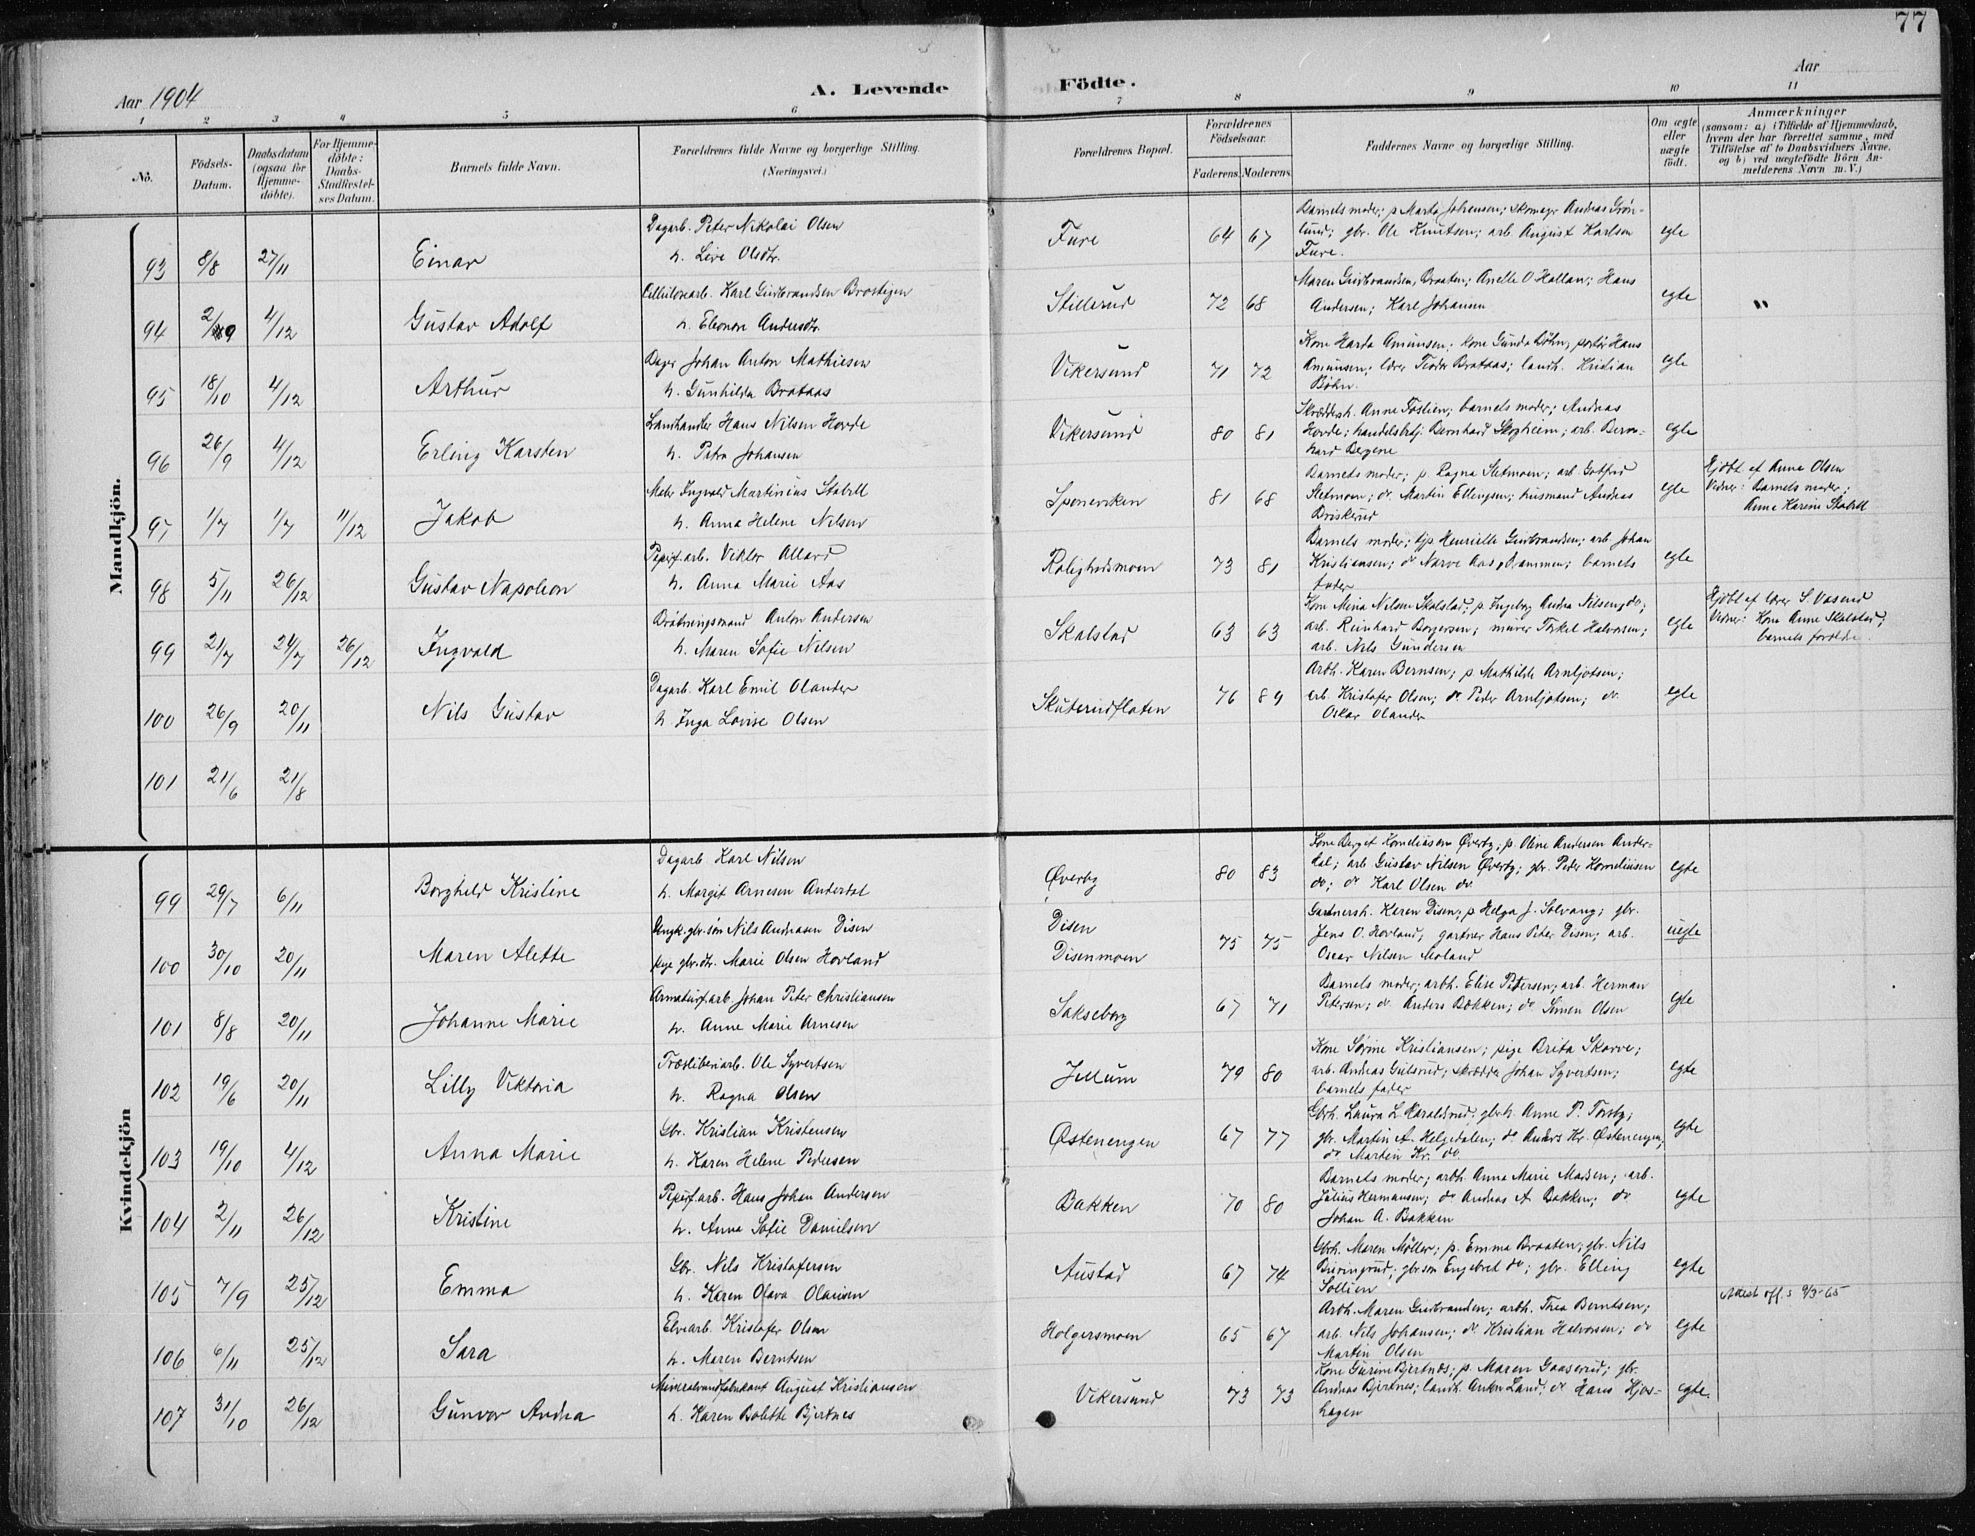 77
Aar 1904
A. Levende Födte.
Aar
1 2 3 4 5 6 7 8 9 10 11
No.
Födsels-Datum.
Daabsdatum (ogsaa for Hjemmedöbte).
For Hjemmedöbte: Daabs-Stadfæstelses Datum.
Barnets fulde Navn.
Forældrenes fulde Navne og borgerlige Stilling. (Næringsvei.)
Forældrenes Bopæl.
Forældrenes Födselsaar.
Faderens. Moderens.
Faddernes Navne og borgerlige Stilling.
Om ægte eller uægte födt.
Anmærkninger (saasom: a) i Tilfælde af Hjemmedaab, hvem der har forrettet samme, med Tilföielse af to Daabsvidners Navne, og b) ved uægtefödte Börn Anmelderens Navn m. V.)
Mandkjön.
93 8/8 27/11 Einar
Dagarb. Peter Nikolai Olsen
h. Live Olsdtr.
Fure 64 67
Barnets moder; p Marta Johansen; skomager Andreas Grön-
lund; gbr. Ole Knutsen; arb August Karlsen
Fure.
egte
94 2/9 4/12 Gustav Adolf
Cellulosearb. Karl Gudbrandsen Brostigen
h. Eleonore Andersdtr.
Stillerud 72 68
Maren Gudbrandsen Braaten; Anelle O Hallan; Hans
Andersen; Karl Johansen
egte "
95 18/10 4/12 Arthur
Bager Johan Anton Mathiesen
h. Gunhilda Brataas
Vikersund 71 72
Kone Marta Amunsen; kone Gunda Böhn; portör Hans
Amunsen; lærer Teodor Brataas; landh. Kristian
Böhn.
egte
96 26/9 4/12 Erling Karsten
Landhandler Hans Nilsen Hovde
h. Petra Johansen
Vikersund 80 81
Skræddersh. Anne Tostien; barnets moder; Andreas
Hovde; handelsbetj. Bernhard Skogheim; arb. Bern-
hard Bergene
egte
97 1/7 1/7 11/12 Jakob
Maler Ingvald Martinius Stabell
h. Anna Helene Nilsen
Sponevsken 81 68
Barnets moder; p. Ragna Sletmoen; arb. Gotfred
Sletmoen; do Martin Ellingsen; husmand Andreas
Briskerud
egte
Hjdbt af Anna Olsen
Vidner: Barnets moder;
Anna Karine Stabell
98 5/11 26/12 Gustav Napoleon
Papirf.arb. Viktor Allard
h. Anna Marie Aas
Rolighedsmoen 73 81
Barnets moder; tjp Henriette Gudbrandsen; arb Johan
Kristiansen; do Narve Aas, Drammen; barnets
fader
egte
99 21/7 24/7 26/12 Ingvald
Bröitningsmand Anton Andersen
h. Maren Sofie Nilsen
Skalstad 63 63
Kone Mina Nilsen Skalstad; p. Ingeborg Andrea Nilsen, do;
arb. Reinhard Borgersen; murer Torkel Halvorsen;
arb. Nils Gundersen
egte
Hjdöbt af lærer S. Vasend
Vidner: Kone Anne Skalstad;
barnets foreldre.
100 26/9 20/11 Nils Gustav
Dagarb. Karl Emil Olander
h Inga Lovise Olsen
Skuterudflaten 76 89
Arbh. Karen Bernsen; p Mathilde Arnljotsen;
arb. Kristofer Olsen; do Peder Arnljotsen; do.
Oskar Olander
egte
101 21/6 21/8
Kvindekjön
99 29/7 6/11 Borghild Kristine
Dagarb Karl Nilsen
h. Margit Arnesen Anderdal
Øverby 80 83
Kone Berget Korneliussen Øverby; p. Oline Andersen Ander-
dal; arb Gustav Nilsen Øverby; gbr. Peder Korneliussen
do; do Karl Olsen do
egte
100 30/10 20/11 Maren Alette
Ungk. gbr.sön Nils Andreasen Disen
pige gbr.dtr. Marie Olsen Hovland
Disen
Disenmoen
75 75
Gartnersh. Karen Disen; p Helga J. Solvang; gbr.
Jens O. Hovland; gartner Hans Peter Disen; arb.
Oscar Nilsen Moland
uegte
101 8/8 20/11 Johanne Marie
Armaturf.arb. Johan Peter Christiansen
h. Anne Marie Arnesen
Sakseborg 67 71
Barnets moder; arbh. Elise Petersen; arb. Herman
Petersen; do Anders Bakken; do Simen Olsen
egte
102 19/6 20/11 Lilly Viktoria
Træsliberiarb. Ole Syvertsen
h. Ragna Olsen
Jellum 79 80
Kone Sørine Kristiansen; pige Brita Skarve;
arb. Andreas Gulsrud; skrædder Johan Syvertsen;
barnets fader
egte
103 19/10 4/12 Anna Marie
Gbr. Kristian Kristensen
h. Karen Helene Pedersen
Østenengen 67 77
Gbrh. Laura L Haraldsrud; gbrh. Anne P. Forsby;
gbr. Martin A. Helgedalen; do Anders Kr. Østenengen;
do Martin Kr. do.
egte
104 2/11 26/12 Kristine
Papirf.arb. Hans Johan Andersen
h. Anna Sofie Danielsen
Bakken 70 80
Barnets moder; arbh. Anna Marie Madsen; arb.
Julius Hermansen; do Andreas A Bakken; do
Johan A. Bakken
egte
105 7/9 25/12 Emma
Gbr. Nils Kristofersen
h. Karen Olava Olausen
Austad 67 74
Gbrh. Maren Møller; p. Emma Braaten; gbr. Nils
Buringrud; gbr.søn Engebret do; gbr. Elling
Sollien
egte
Attest off. s 9/3-65
106 6/11 25/12 Sara
Elvearb. Kristofer Olsen
h. Maren Berntsen
Holgersmoen 65 67
Arbh. Maren Gudbrandsen; arbh. Thea Berntsen;
arb. Nils Johansen; do Kristian Halvorsen; do
Martin Olsen
egte
107 31/10 26/12 Gunvor Andrea
Mineralvandfabrikant August Kristiansen
h. Karen Bolette Bjertnes
Vikersund 73 73
Kone Gurine Bjertnes; p. Maren Gaaserud; gbr.
Andreas Bjertnes; landh. Anton Land; do Hans Hjos-
hagen
egte